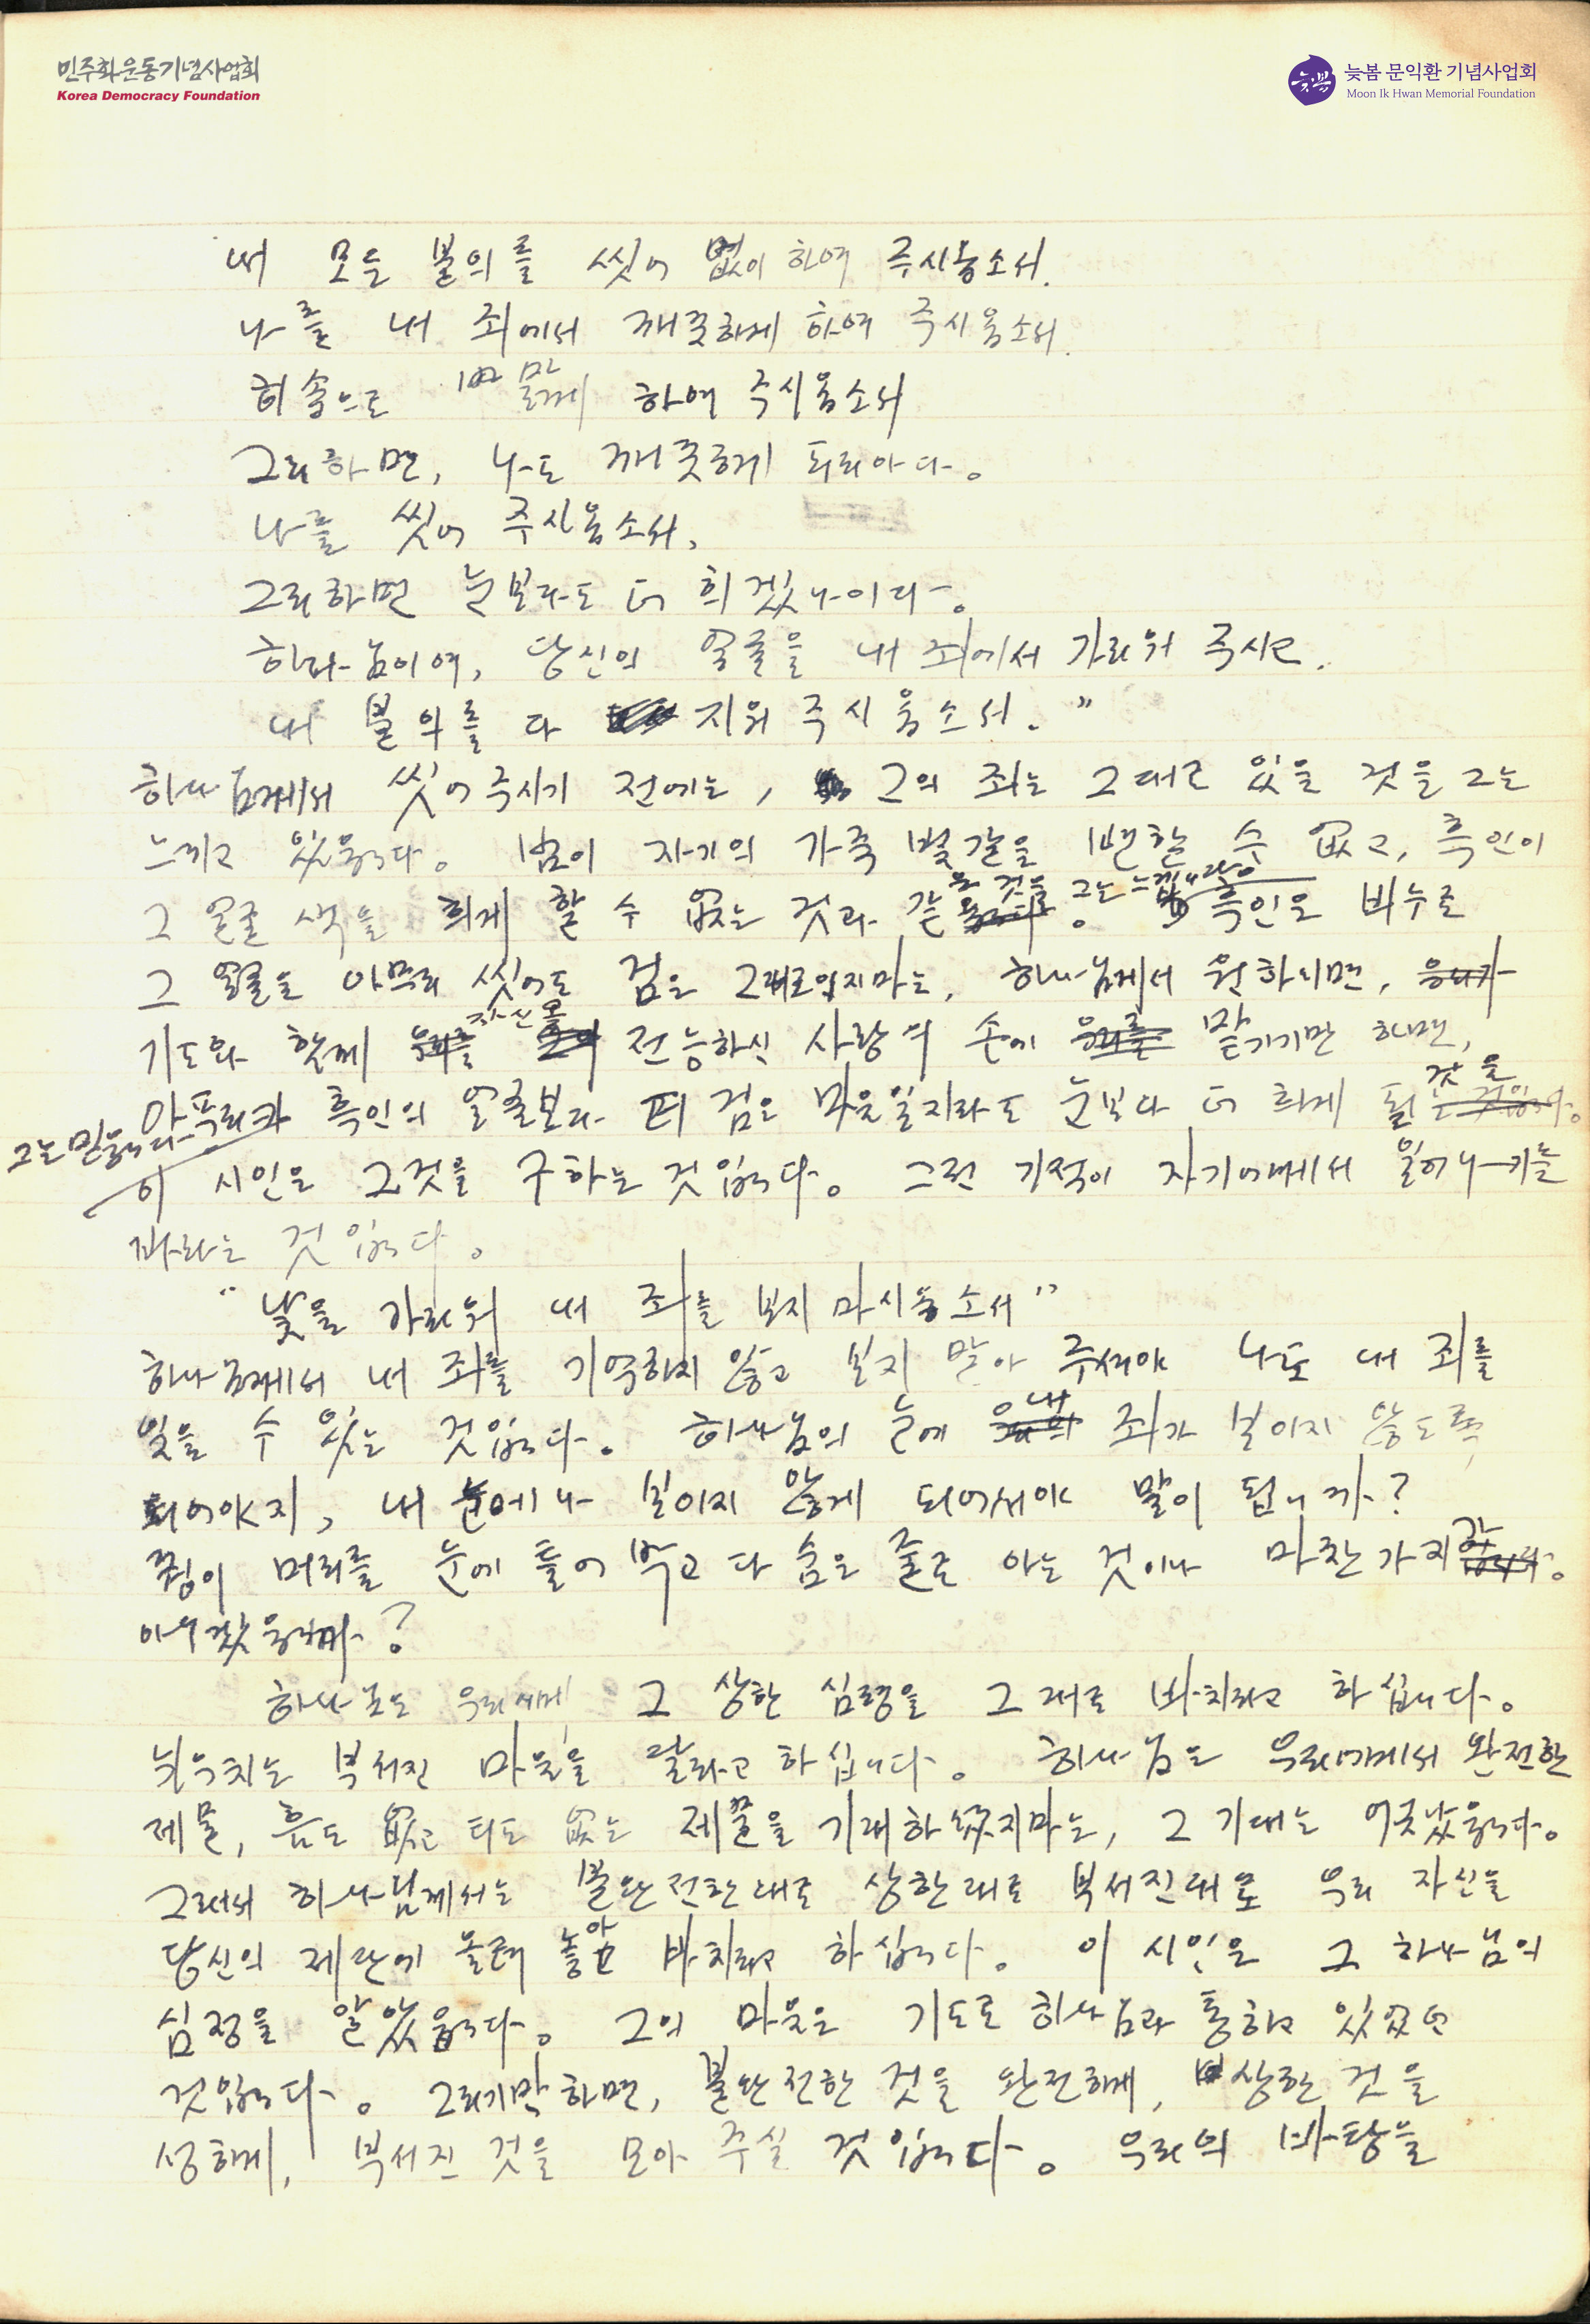 민주화운동기념사업회
Korea Democracy Foundation
늦봄 문익환 기념사업회
Moon Ik Hwan Memorial Foundation
내 모든 불의를 씻어 없이 하여 주시옵소서.
나를 내 죄에서 깨끗하게 하여 주시옵소서.
히솝으로 맑게 하여 주시옵소서
그리하면, 나도 깨끗하게 되리이다.
나를 씻어 주시옵소서,
그리하면 눈보다도 더 희겠나이다.
하나님이여, 당신의 얼굴을 내 죄에서 가리워 주시고.
내 불의를 다 지워 주시옵소서."
하나님께서 씻어 주시기 전에는, 그의 죄는 그대로 있을 것을 그는
느끼고 있읍니다. 범이 자기의 가죽 빛갈을 변할 수 없고, 흑인이
그 얼굴 색을 희게 할 수 없는 것과 같은 것을 그는 흑인은 비누로
그 얼굴을 아무리 씻어도 검은 그대로이지마는, 하나님께서 원하시면,
기도와 함께 자신을 전능하신 사랑의 손에 맡기기만 하면,
아프리카 흑인의 얼굴보다 더 검은 마음일지라도 눈보다 더 희게 될 것을
그는 믿읍니다.
이 시인은 그것을 구하는 것입니다. 그런 기적이 자기에게서 일어나기를
바라는 것입니다.
"낯을 가리워 내 죄를 보지 마시옵소서"
하나님께서 내 죄를 기억하지 않고 보지 말아 주셔야 나도 내 죄를
잊을 수 있는 것입니다. 하나님의 눈에 내 죄가 보이지 않도록
되어야지, 내 눈에나 보이지 않게 되어서야 말이 됩니까?
꿩이 머리를 눈에 틀어 박고 다 숨은 줄로 아는 것이나 마찬가지가
아니겠읍니까?
하나님은 우리에게 그 상한 심령을 그대로 바치라고 하십니다.
뉘우치는 부서진 마음을 달라고 하십니다. 하나님은 우리에게서 완전한
제물, 흠도 없고 티도 없는 제물을 기대하셨지마는, 그 기대는 어긋났읍니다.
그래서 하나님께서는 불완전한대로 상한대로 부서진대로 우리 자신을
당신의 제단에 올려 놓아 바치라고 하십니다. 이 시인은 그 하나님의
심정을 알았읍니다. 그의 마음은 기도로 하나님과 통하고 있었던
것입니다. 그러기만 하면, 불완전한 것을 완전하게, 상한 것을
성하게, 부서진 것을 모아 주실 것입니다. 우리의 바탕을